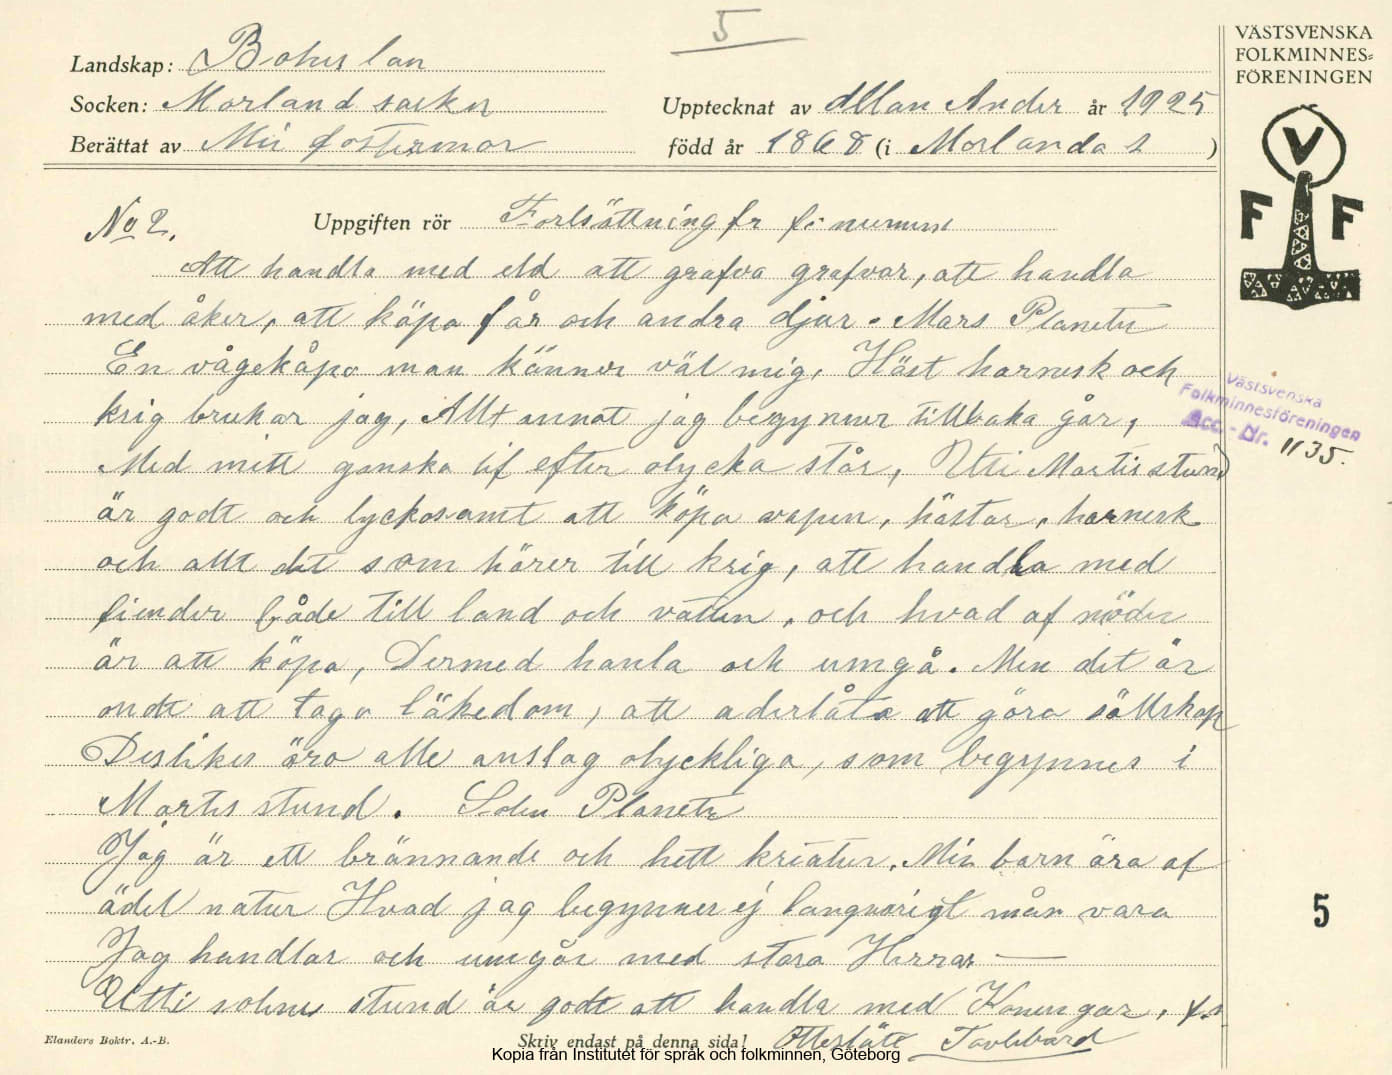 5
Landskap: Bohuslän
Socken: Morland socken
Berättat av Min fostermor
Upptecknat av Allan Ander år 1925
född år 1868 (i Morlanda s )
VÄSTSVENSKA
FOLKMINNES-
FÖRENINGEN
V
F F
No 2. Uppgiften rör Fortsättning fr fö numm
Att handla med eld att grafva grafvar, att handla
med åker, att köpa får och andra djur. Mars Planetii
En vågekåpa man känner väl mig, Häst harnesk och
krig brukar jag, Allt annat jag begynner tillbaka går,
Med mitt ganska lif efter olycka står, Uti Martis stund
är godt och lyckosamt att köpa vapen, hästar, harnesk
och allt det som hörer till krig, att handla med
fiender både till land och vatten, och hvad af nöden
är att köpa, Dermed hanla och umgå. Men det är
ondt att taga läkedom, att aderlåta att göra sällskap
Deslikes äro alle anslag olyckliga, som begynnes i
Martis stund. Solen Planetii
Jag är ett brännande och hett kreatur, Min barn ära af
ädel natur Hvad jag begynner ej langvarigt mån vara
Jag handlar och umgår med stora Herrar —
Utti solens stund är godt att handla med Konungar,
Västsvenska
Folkminnesföreningen
Acc.-Nr. 1135.
5
Elanders Boktr. A.-B.
Skriv endast på denna sida!
Kopia från Institutet för språk och folkminnen, Göteborg